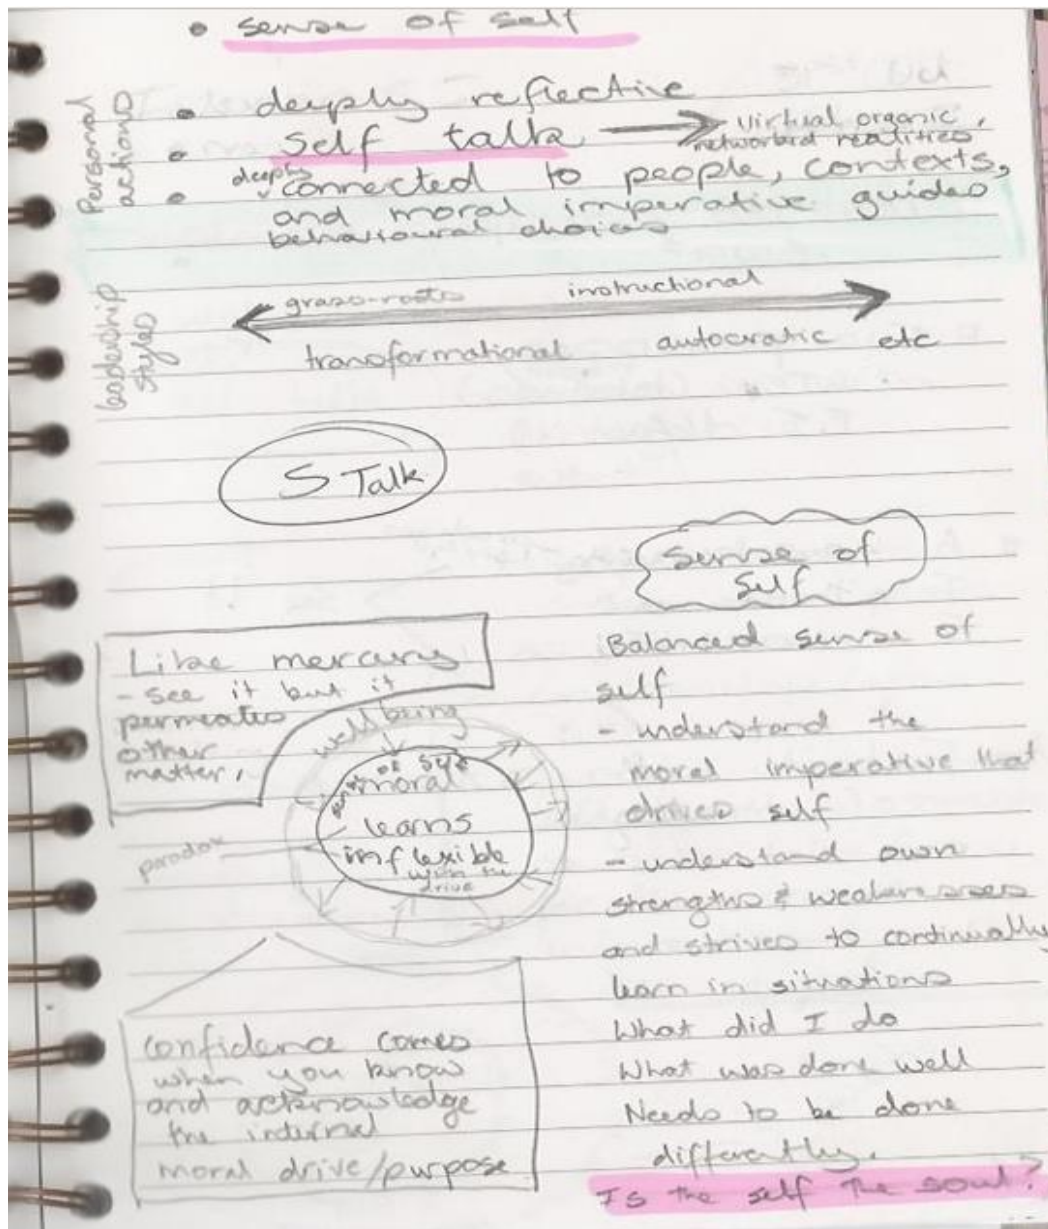 • sense of self
Personal
actions
• deeply reflective
• self talk → virtual organic,
networked realities
deeply
• connected to people, contexts,
and moral imperative guides
behavioural choices
leadership
styles
grass-roots instructional
transformational autocratic etc
S Talk
Sense of
Self
Like mercury
- see it but it
permeates
other
matter,
well being
sense of self
moral
learns
inflexible
with the
drive
paradox
confidence comes
when you know
and acknowledge
the internal
moral drive/purpose
Balanced sense of
self
- understand the
moral imperative that
drives self
- understand own
strengths & weaknesses
and strives to continually
learn in situations
What did I do
What was done well
Needs to be done
differently.
Is the self the soul?